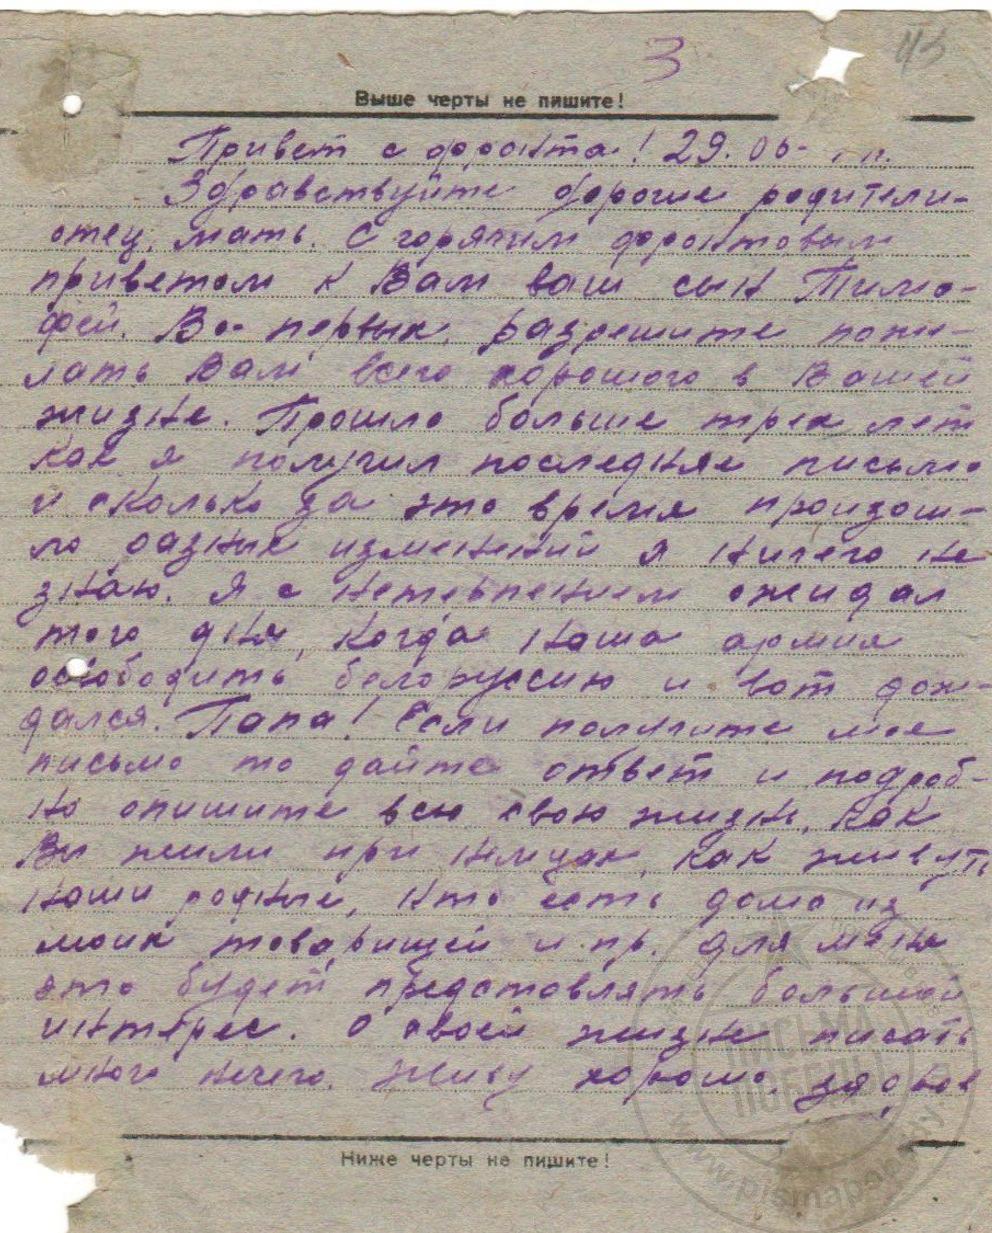 3
43
Выше черты не пишите!
Привет с фронта! 29. 06-
Здравствуйте дорогие родители-
отец, мать. С горячим фронтовым
приветом к Вам ваш сын Тимо-
фей. Во-первых, разрешите поже-
лать Вам всего хорошого в Вашей
жизне. Прошло больше трех лет
как я получил последняе письмо
и сколько за это время произош-
ло разных изменений я ничего не
знаю. Я с нетерпением ожидал
того дня, когда наша армия
освободить белоруссию и вот дож-
дался. Папа! Если получите мое
письмо то дайте ответ и подроб-
но опишите всю свою жизнь, как
Вы жили при немцах, как живуть
наши родные, кто есть дома из
моих товарищей и пр. для меня
это будет представлять большой
интерес. О своей жизне писать
много нечего. Живу хорошо, здоров
Ниже черты не пишите!
ПИСЬМА
ПОБЕДЫ
www.pismapobedy.